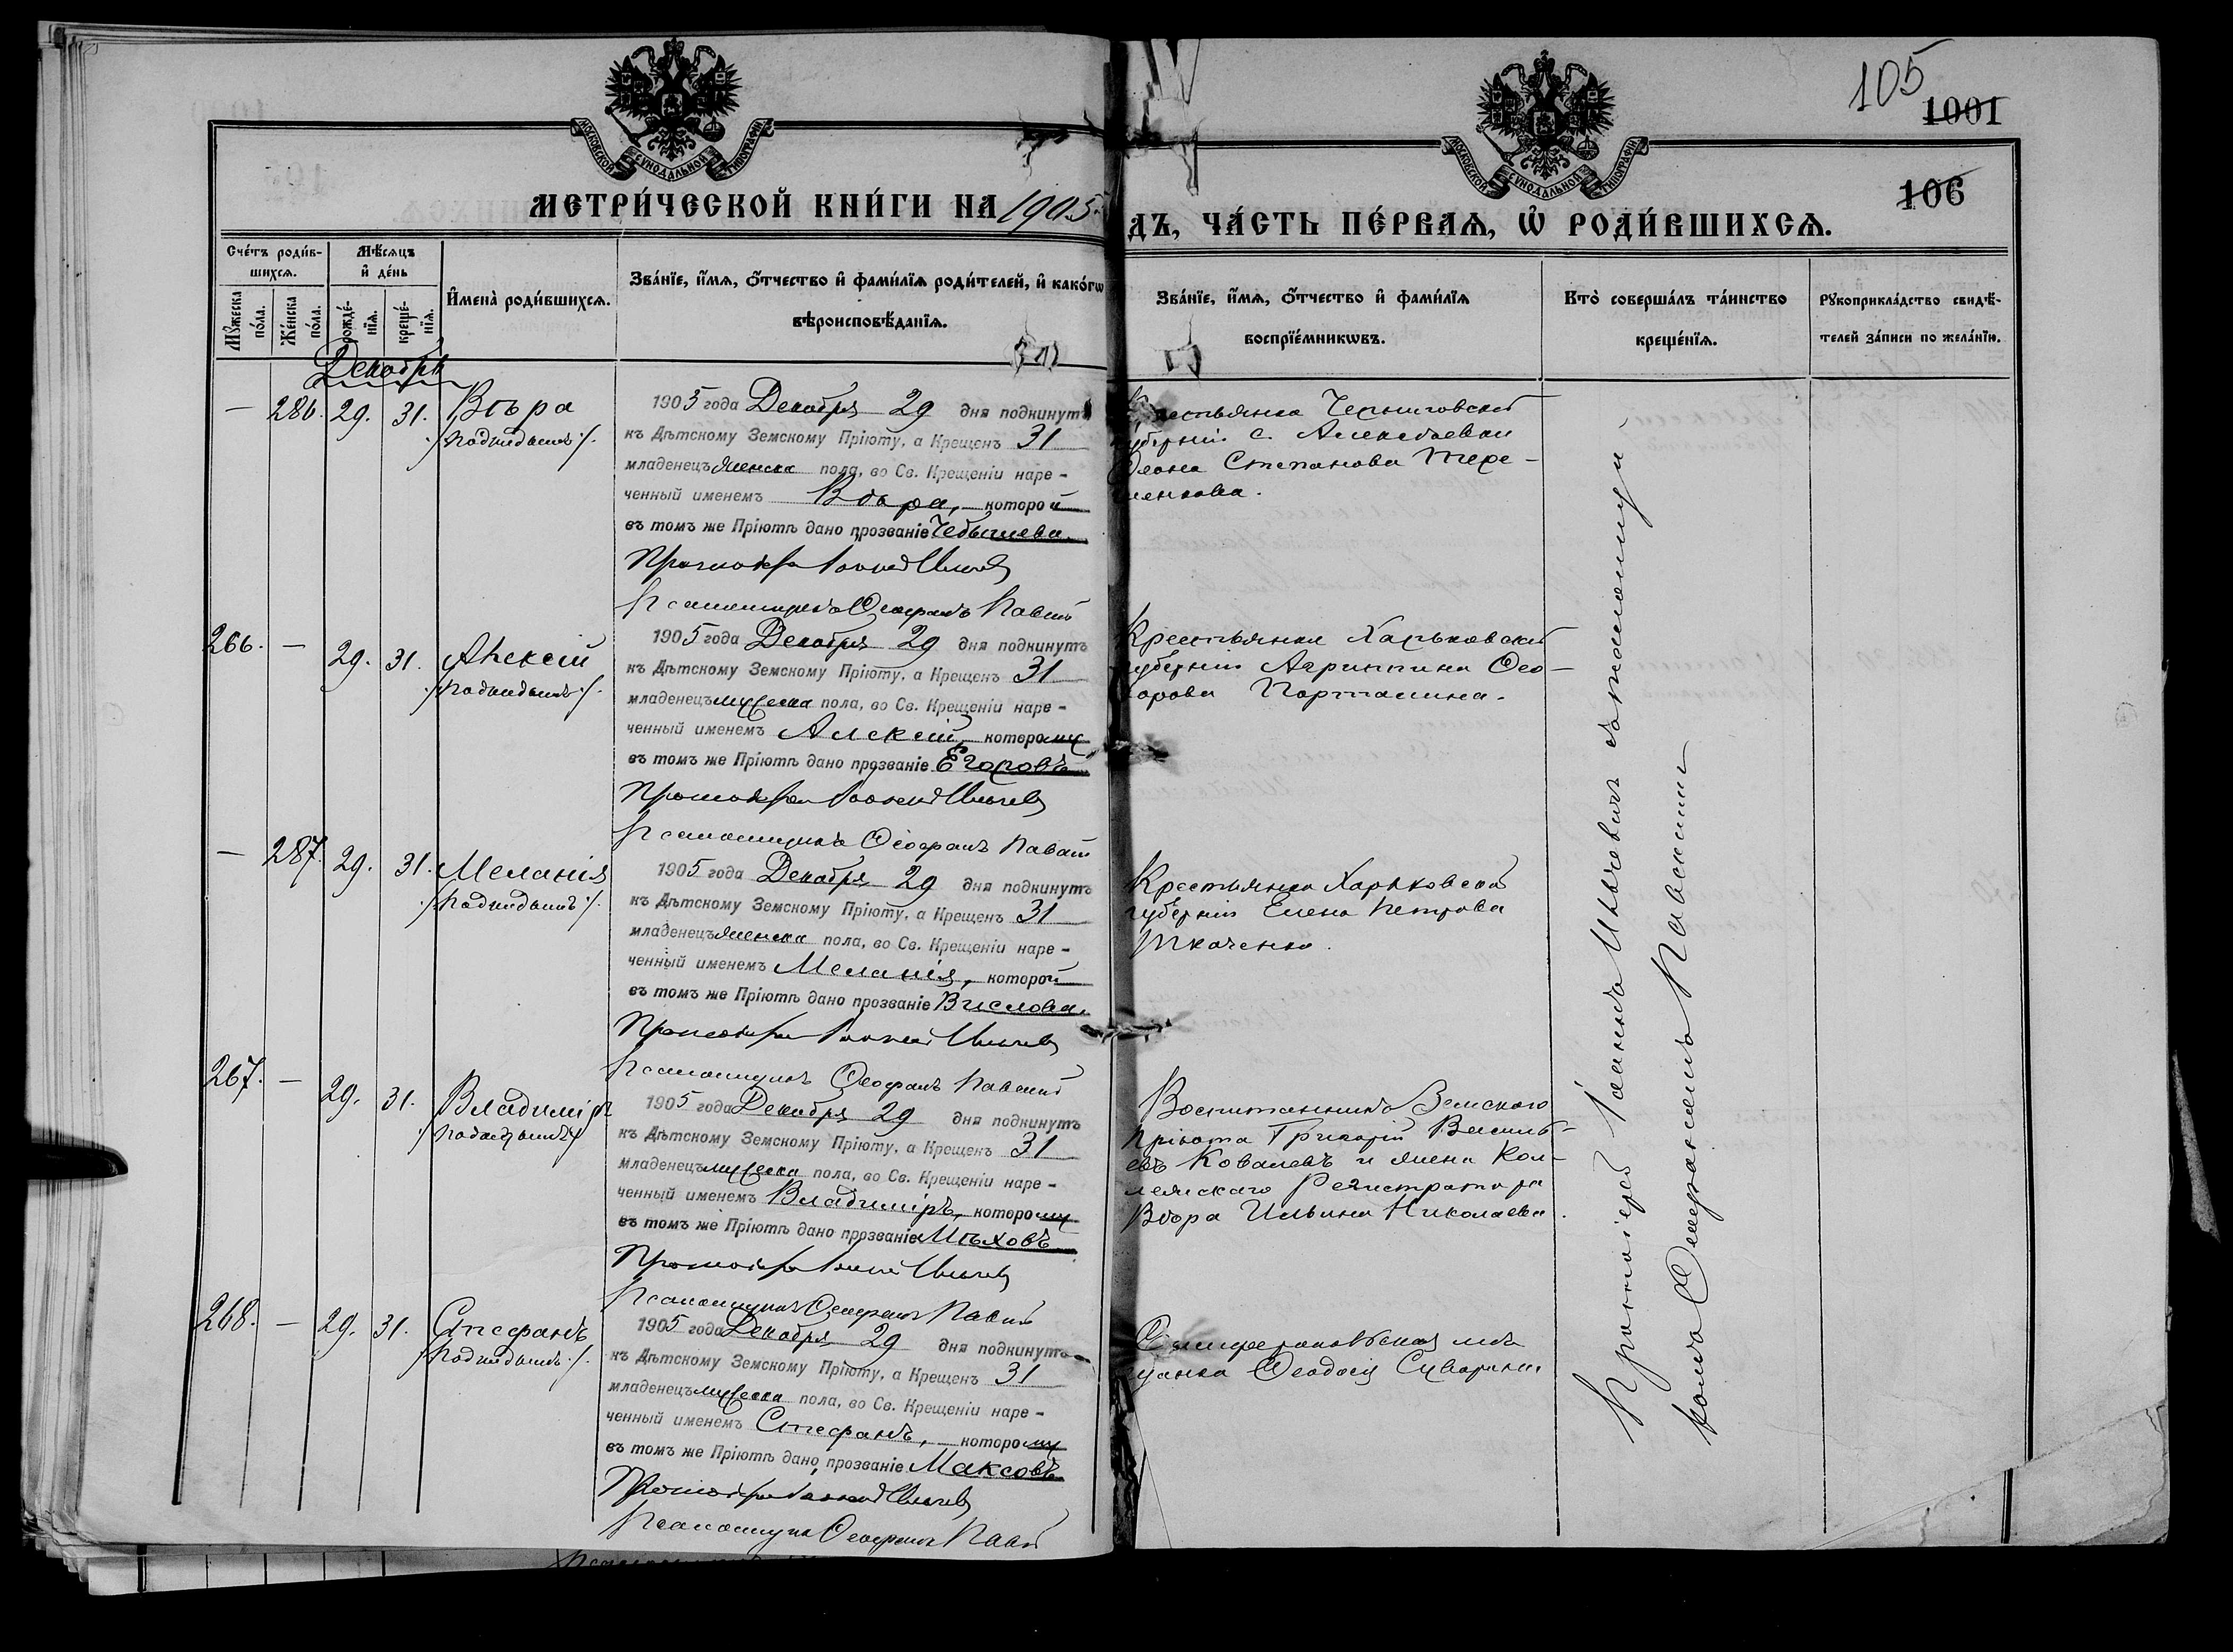 105
1001
106
МОСКОВСКОЙ СѴНОДАЛЬНОЙ ТИПОГРАФІИ
МОСКОВСКОЙ СѴНОДАЛЬНОЙ ТИПОГРАФІИ
МЕТРИ́ЧЕСКОЙ КНИ́ГИ НА 1905
ДЪ, ЧА́СТЬ ПЕ́РВАѦ, Ѡ҆ РОДИ́ВШИХСѦ.
Сче́тъ роди́в-
шихсѧ.
Мꙋ́жеска
по́ла.
Же́нска
по́ла.
Мѣ́сяцъ
и҆ де́нь
рожде́-
нїѧ.
креще́-
нїѧ.
И҆мена̀ роди́вшихсѧ.
Зва́нїе, и҆́мѧ, ѻ҆́тчество и҆ фами́лїѧ роди́телей, и҆ како́гѡ
вѣроисповѣ́данїѧ.
Зва́нїе, и҆́мѧ, ѻ҆́тчество и҆ фами́лїѧ
воспрїе́мникѡвъ.
Кто̀ соверша́лъ та́инство
креще́нїѧ.
Рꙋкоприкла́дство свидѣ́-
телей за́писи по жела́нїю.
Декабрь
— 286. 29. 31. Вѣра
./Подкидышъ/.
1905 года Декабря 29 дня подкинутъ
къ Дѣтскому Земскому Пріюту, а Крещенъ 31
младенецъ женска пола, во Св. Крещеніи наре-
ченный именемъ Вѣра, которой
въ томъ же Пріютѣ дано прозваніе Чебышева.
Протоіерей Іоаннъ Ильчевъ
Псаломщикъ Ѳеофанъ Павскій
Крестьянка Черниговской
губерніи с. Алексѣевки
Степанова Тере-
щенкова.
266. — 29. 31. Алексій
./Подкидышъ/.
1905 года Декабря 29 дня подкинутъ
къ Дѣтскому Земскому Пріюту, а Крещенъ 31
младенецъ мужеска пола, во Св. Крещеніи наре-
ченный именемъ Алексій, которому
въ томъ же Пріютѣ дано прозваніе Егоровъ
Протоіерей Іоаннъ Ильчевъ
Псаломщикъ Ѳеофанъ Павскій
Крестьянка Харьковской
губерніи Агриппина Ѳео-
дорова
— 287. 29. 31. Меланія
./Подкидышъ/.
1905 года Декабря 29 дня подкинутъ
къ Дѣтскому Земскому Пріюту, а Крещенъ 31
младенецъ женска пола, во Св. Крещеніи наре-
ченный именемъ Меланія, которой
въ томъ же Пріютѣ дано прозваніе Вислова.
Протоіерей Іоаннъ Ильчевъ
Псаломщикъ Ѳеофанъ Павскій
Крестьянка Харьковской
губерніи Елена Петрова
Ткаченко.
267. — 29. 31. Владиміръ
./Подкидышъ/
1905 года Декабря 29 дня подкинутъ
къ Дѣтскому Земскому Пріюту, а Крещенъ 31
младенецъ мужеска пола, во Св. Крещеніи наре-
ченный именемъ Владиміръ, которому
въ томъ же Пріютѣ дано прозваніе Мѣховъ
Протоіерей Іоаннъ Ильчевъ
Псаломщикъ Ѳеофанъ Павскій
Воспитанникъ Земскаго
Пріюта Григорій Василь-
евъ Ковалевъ и жена Кол-
лежскаго Регистратора
Вѣра Ильина Николаева.
268. — 29. 31. Стефанъ
./Подкидышъ./.
1905 года Декабря 29 дня подкинутъ
къ Дѣтскому Земскому Пріюту, а Крещенъ 31
младенецъ мужеска пола, во Св. Крещеніи наре-
ченный именемъ Стефанъ, которому
въ томъ же Пріютѣ дано прозваніе Максовъ
Протоіерей Іоаннъ Ильчевъ
Псаломщикъ Ѳеофанъ Павскій
Симферопольская мѣ
щанка Ѳеодосія
Протоіерей Іоаннъ Ильчевъ съ псаломщи-
комъ Ѳеофаномъ Павскимъ